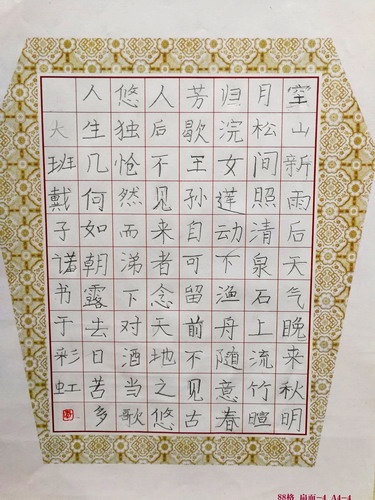 空山新雨后天气晚来秋明
月松间照清泉石上流竹暄
归浣女莲动不渔舟随意春
芳歇王孙自可留前不见古
人后不见来者念天地之悠
悠独怆然而涕下对酒当歌
人生几何如朝露去日苦多
大班戴子诺书于彩虹
88格 扇面-4 A4-4